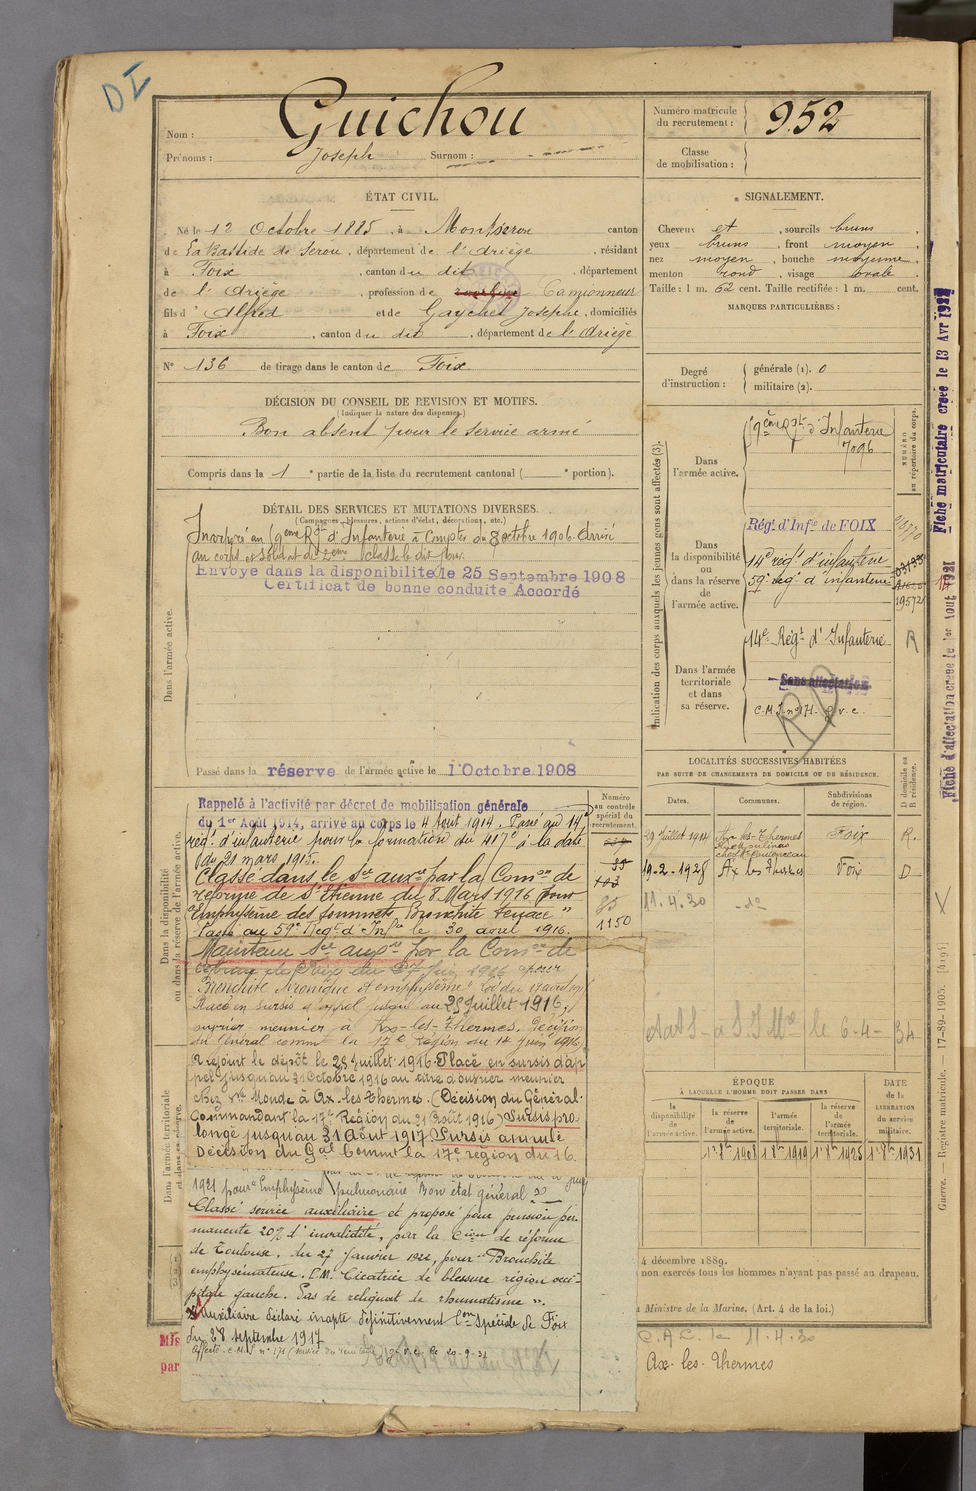 DI
Nom : Guichou
Prénoms : Joseph Surnom :
Numéro matricule du recrutement : 952
Classe de mobilisation :
ÉTAT CIVIL.
Né le 12 Octobre 1885, à Montseron canton
de La Bastide de Serou, département de l'Ariège, résidant
à Foix, canton du dit, département
de l'Ariège, profession de Camionneur
fils d'Alfred et de Gaychet Josephe, domiciliés
à Foix, canton du dit, département de l'Ariège
N° 136 de tirage dans le canton de Foix
DÉCISION DU CONSEIL DE REVISION ET MOTIFS.
(Indiquer la nature des dispenses.)
Bon absent pour le service armé
Compris dans la 1 e partie de la liste du recrutement cantonal ( e portion).
DÉTAIL DES SERVICES ET MUTATIONS DIVERSES.
(Campagnes, blessures, actions d'éclat, décorations, etc.)
Incorporé au 9eme Rgt d'Infanterie à Compter du 8 octobre 1906. Arrivé
au corps et soldat de 2eme classe le dit jour.
Envoyé dans la disponibilité le 25 Septembre 1908
Certificat de bonne conduite Accordé
Dans l'armée active.
Passé dans la réserve de l'armée active le 1 Octobre 1908
Dans la disponibilité ou dans la réserve de l'armée active.
Rappelé à l'activité par décret de mobilisation générale
du 1er Août 1914, arrivé au corps le 4 Aout 1914. Passé au 14e
rég. d'infanterie pour la formation du 417e à la date
du 21 mars 1915.
Classé dans le Sce auxre par la Comon de
réforme de St Etienne du 8 Mars 1916 pour
"Emphysème des sommets, Bronchite tenace"
Passé au 59e Régt d'Infie le 30 avril 1916.
Maintenu Sce auxre par la Comon de
réforme de Foix du juin 1916 pour
Bronchite chronique et emphysème
Placé en sursis d'appel jusqu'au 25 Juillet 1916,
ouvrier meunier à Ax-les-Thermes. Décision
du Général commt la 17e Région du 14 juin 1916
Rejoint le dépôt le 25 Juillet 1916. Placé en sursis d'ap
pel jusqu'au 31 Octobre 1916 au titre d'ouvrier meunier
chez Monde à Ax-les-Thermes. (Décision du Général
Commandant la 17e Région du 21 Août 1916) Sursis pro
longé jusqu'au 31 Août 1917 Sursis annulé
Décision du Gal Commt la 17e région du 16.
Dans l'armée territoriale et dans sa réserve.
1921 pour Emphysème pulmonaire Bon état général
Classé service auxiliaire et proposé pour pension per
manente 20% d'invalidité, par la Cion de réforme
de Toulouse, du 27 Janvier 1922, pour "Bronchite
emphysémateuse. P.M. Cicatrice de blessure région occi-
pitale gauche. Pas de reliquat de rhumatisme".
Auxiliaire déclaré inapte définitivement Con spéciale de Foix
du 28 septembre 1917
Numéro au contrôle spécial du recrutement.
85
1150
SIGNALEMENT.
Cheveux et, sourcils bruns,
yeux bruns, front moyen,
nez moyen, bouche moyenne,
menton rond, visage ovale.
Taille : 1 m. 62 cent. Taille rectifiée : 1 m. cent.
MARQUES PARTICULIÈRES :
Degré d'instruction : générale (1). 0
militaire (2).
Indication des corps auxquels les jeunes gens sont affectés (3).
NUMÉRO au répertoire du corps.
Dans l'armée active.
9e d'Infanterie
7096
Dans la disponibilité ou dans la réserve de l'armée active.
Régt d'Infie de FOIX
14e régt d'infanterie
59e régt d'infanterie
19572
Dans l'armée territoriale et dans sa réserve.
14e Régt d'Infanterie R
Sans affectation
LOCALITÉS SUCCESSIVES HABITÉES
PAR SUITE DE CHANGEMENTS DE DOMICILE OU DE RÉSIDENCE.
Dates. Communes. Subdivisions de région. D domicile ou R résidence.
29 Juillet 1914 Ax-les-Thermes Foix R.
19-2-1928 Ax les Thermes Foix D
11.4.30 -do-
le 6-4-34
ÉPOQUE
À LAQUELLE L'HOMME DOIT PASSER DANS
DATE de la LIBÉRATION du service militaire.
la disponibilité de l'armée active. la réserve de l'armée active. l'armée territoriale. la réserve de l'armée territoriale.
1er 8bre 1908 1er 8bre 1919 1er 8bre 1925 1er 8bre 1931
4 décembre 1889.
non exercés tous les hommes n'ayant pas passé au drapeau.
Ministre de la Marine. (Art. 4 de la loi.)
11.4.30
Ax-les-Thermes
Mis
par
Fiche matriculaire créée le 13 Avr
Fiche d'affectation créée le 1er Aout 1921
Guerre. — Registre matricule. — 17-89-1905.